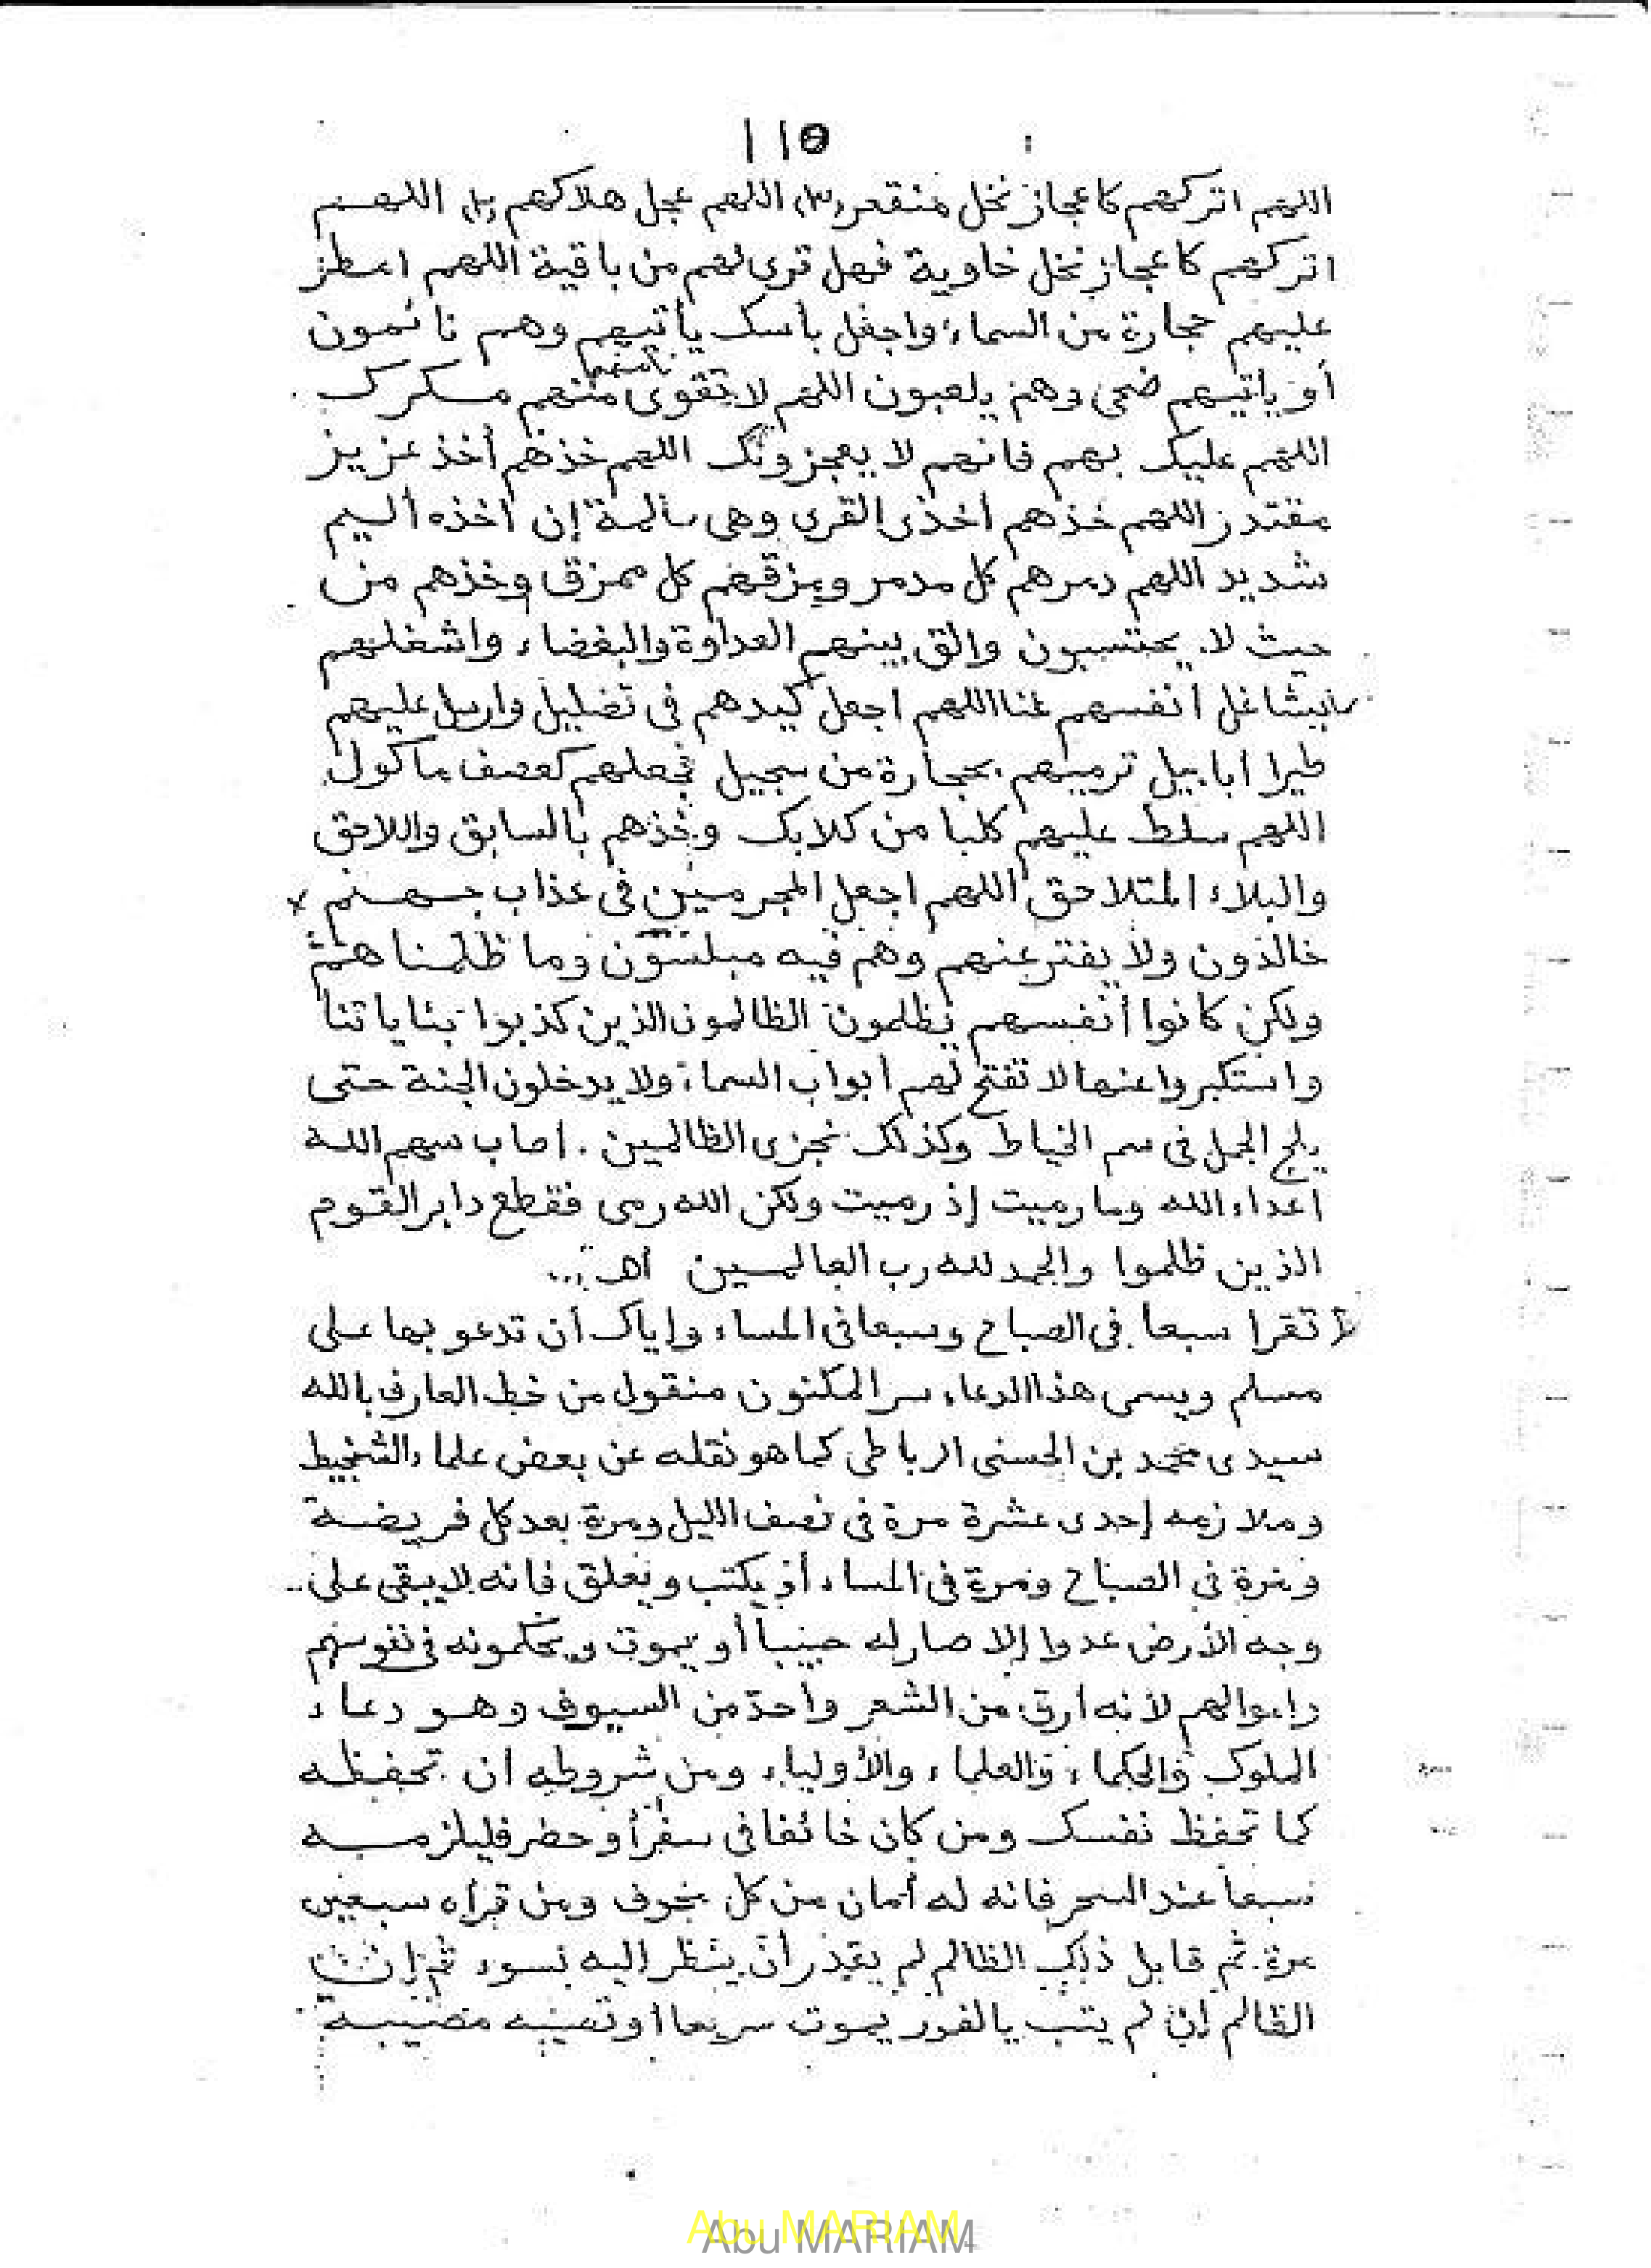 ١١٥
اللهم اتركهم كاعجاز نخل منقعر (٣) اللهم عجل هلاكهم (٣) اللهم
اتركهم كاعجاز نخل خاوية فهل ترى لهم من باقية اللهم امطر
عليهم حجارة من السماء واجعل بأسك يأتيهم وهم نائمون
أو ياتيهم ضحى وهم يلعبون اللهم لا تقوى منهم مكرك
اللهم عليك بهم فانهم لا يعجزونك اللهم خذهم أخذ عزيز
مقتدر اللهم خذهم أخذ القرى وهى ظالمة إن أخذه أليم
شديد اللهم دمرهم كل مدمر ومزقهم كل ممزق وخذهم من
حيث لا يحتسبون والق بينهم العداوة والبغضاء واشغلهم
بشاغل أنفسهم عنا اللهم اجعل كيدهم فى تضليل وارسل عليهم
طيرا أبابيل ترميهم بحجارة من سجيل فجعلهم كعصف ماكول
اللهم سلط عليهم كلبا من كلابك وخذهم بالسابق واللاحق
والبلاء المتلاحق اللهم اجعل المجرمين فى عذاب جهنم
خالدون ولا يفتر عنهم وهم فيه مبلسون وما ظلمنا هم
ولكن كانوا أنفسهم يظلمون الظالمون الذين كذبوا بئاياتنا
واستكبروا عنها لا تفتح لهم أبواب السماء ولا يدخلون الجنة حتى
يلج الجمل فى سم الخياط وكذلك نجزى الظالمين . اصاب سهم الله
أعداء الله وما رميت إذ رميت ولكن الله رمى فقطع دابر القوم
الذين ظلموا والحمد لله رب العالمين اهـ ...
تقرا سبعا فى الصباح وسبعا فى المساء وإياك أن تدعو بها على
مسلم ويسمى هذا الدعاء سر المكنون منقول من خط العارف بالله
سيدى محمد بن الحسنى الرباطى كما هو نقله عن بعض علماء الشنجيط
وملازمه إحدى عشرة مرة فى نصف الليل ومرة بعد كل فريضة
ومرة فى الصباح ومرة فى المساء أو يكتب ويعلق فانه لا يبقى على
وجه الأرض عدوا إلا صار له حبيبا أو يموت ويحكمونه فى نفوسهم
واموالهم لأنه ارق من الشعر واحد من السيوف وهو دعاء
الملوك والحكماء والعلماء والأولياء ومن شروطه ان تحفظه
كما تحفظ نفسك ومن كان خائفا فى سفر أو حضر فليلزمه
سبعا عند السحر فانه له أمان من كل مخوف ومن قرأه سبعين
مرة ثم قابل ذلك الظالم لم يقدر أن ينظر اليه بسوء ثم إن
الظالم إن لم يتب يالفور يموت سريعا أو تصيبه مصيبة
Abu MARIAM